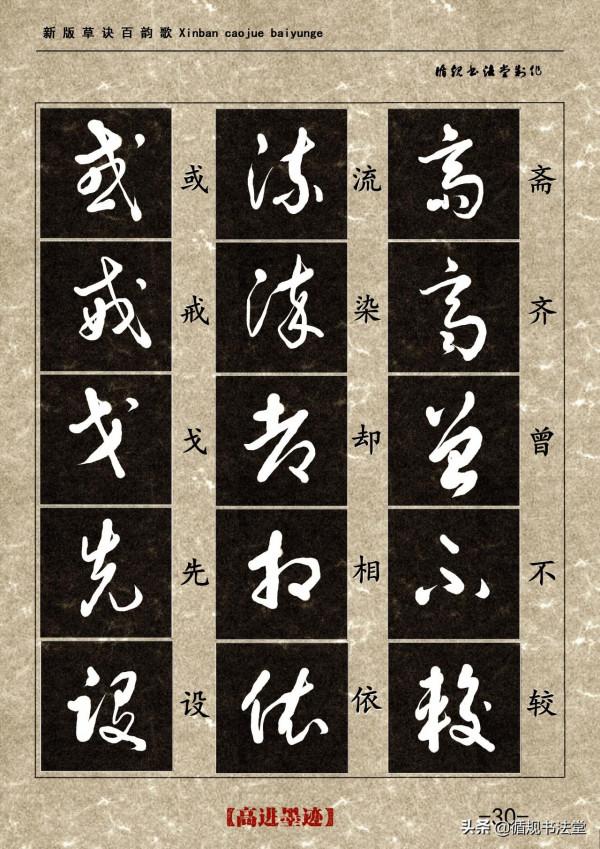 新版草诀百韵歌 Xinban caojue baiyunge
循规书法堂制作
斋齐曾不较
流染却相依
或戒戈先设
【高进墨迹】
-30-
头条 @循规书法堂